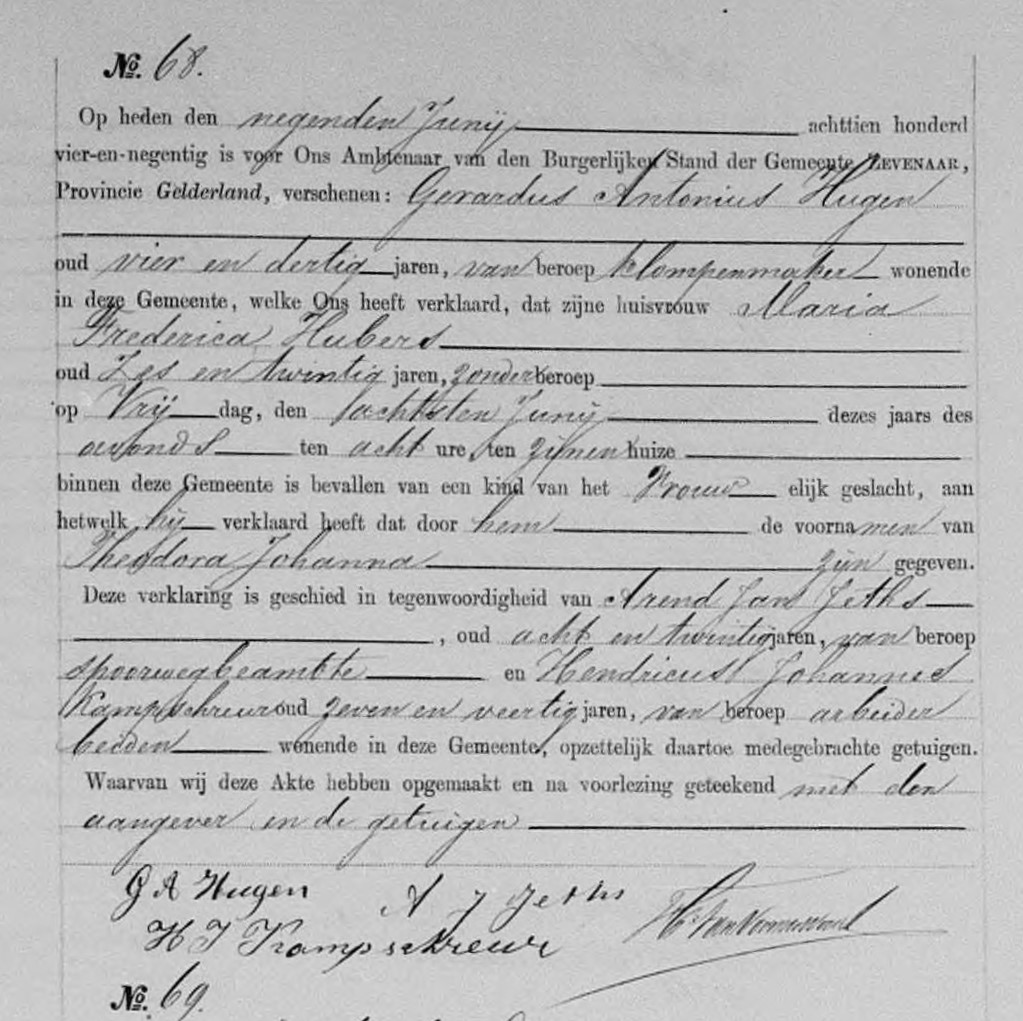 No. 68.
Op heden den negenden Junij achttien honderd
vier-en-negentig is voor Ons Ambtenaar van den Burgerlijken Stand der Gemeente ZEVENAAR,
Provincie Gelderland, verschenen: Gerardus Antonius Hugen
oud vier en dertig jaren, van beroep klompenmaker wonende
in deze Gemeente, welke Ons heeft verklaard, dat zijne huisvrouw Maria
Frederica Hubers
oud Zes en twintig jaren, zonder beroep
op Vrij dag, den achtsten Junij dezes jaars des
avonds ten acht ure, ten zijnen huize
binnen deze Gemeente is bevallen van een kind van het Vrouw elijk geslacht, aan
hetwelk hij verklaard heeft dat door hem de voornamen van
Theodora Johanna zijn gegeven.
Deze verklaring is geschied in tegenwoordigheid van Arend Jan Jeths
, oud acht en twintig jaren, van beroep
spoorwegbeambte en Hendricus Johannes
Kampschreur oud zeven en veertig jaren, van beroep arbeider
beiden wonende in deze Gemeente, opzettelijk daartoe medegebrachte getuigen.
Waarvan wij deze Akte hebben opgemaakt en na voorlezing geteekend met den
aangever en de getuigen
G A Hugen A J Jeths
H J Kampschreur
No. 69.